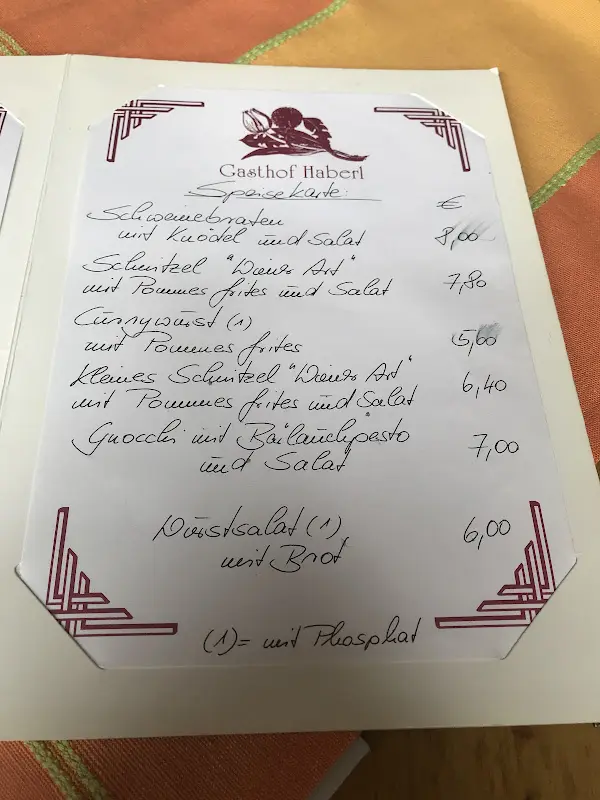 Gasthof Haberl
Speisekarte:
€
Schweinebraten
mit Knödel und Salat 8,00
Schnitzel "Wiener Art"
mit Pommes frites und Salat 7,80
Currywurst (1)
mit Pommes frites 5,60
Kleines Schnitzel "Wiener Art"
mit Pommes frites und Salat 6,40
Gnocchi mit Bärlauchpesto
und Salat 7,00
Wurstsalat (1) 6,00
mit Brot
(1) = mit Phosphat